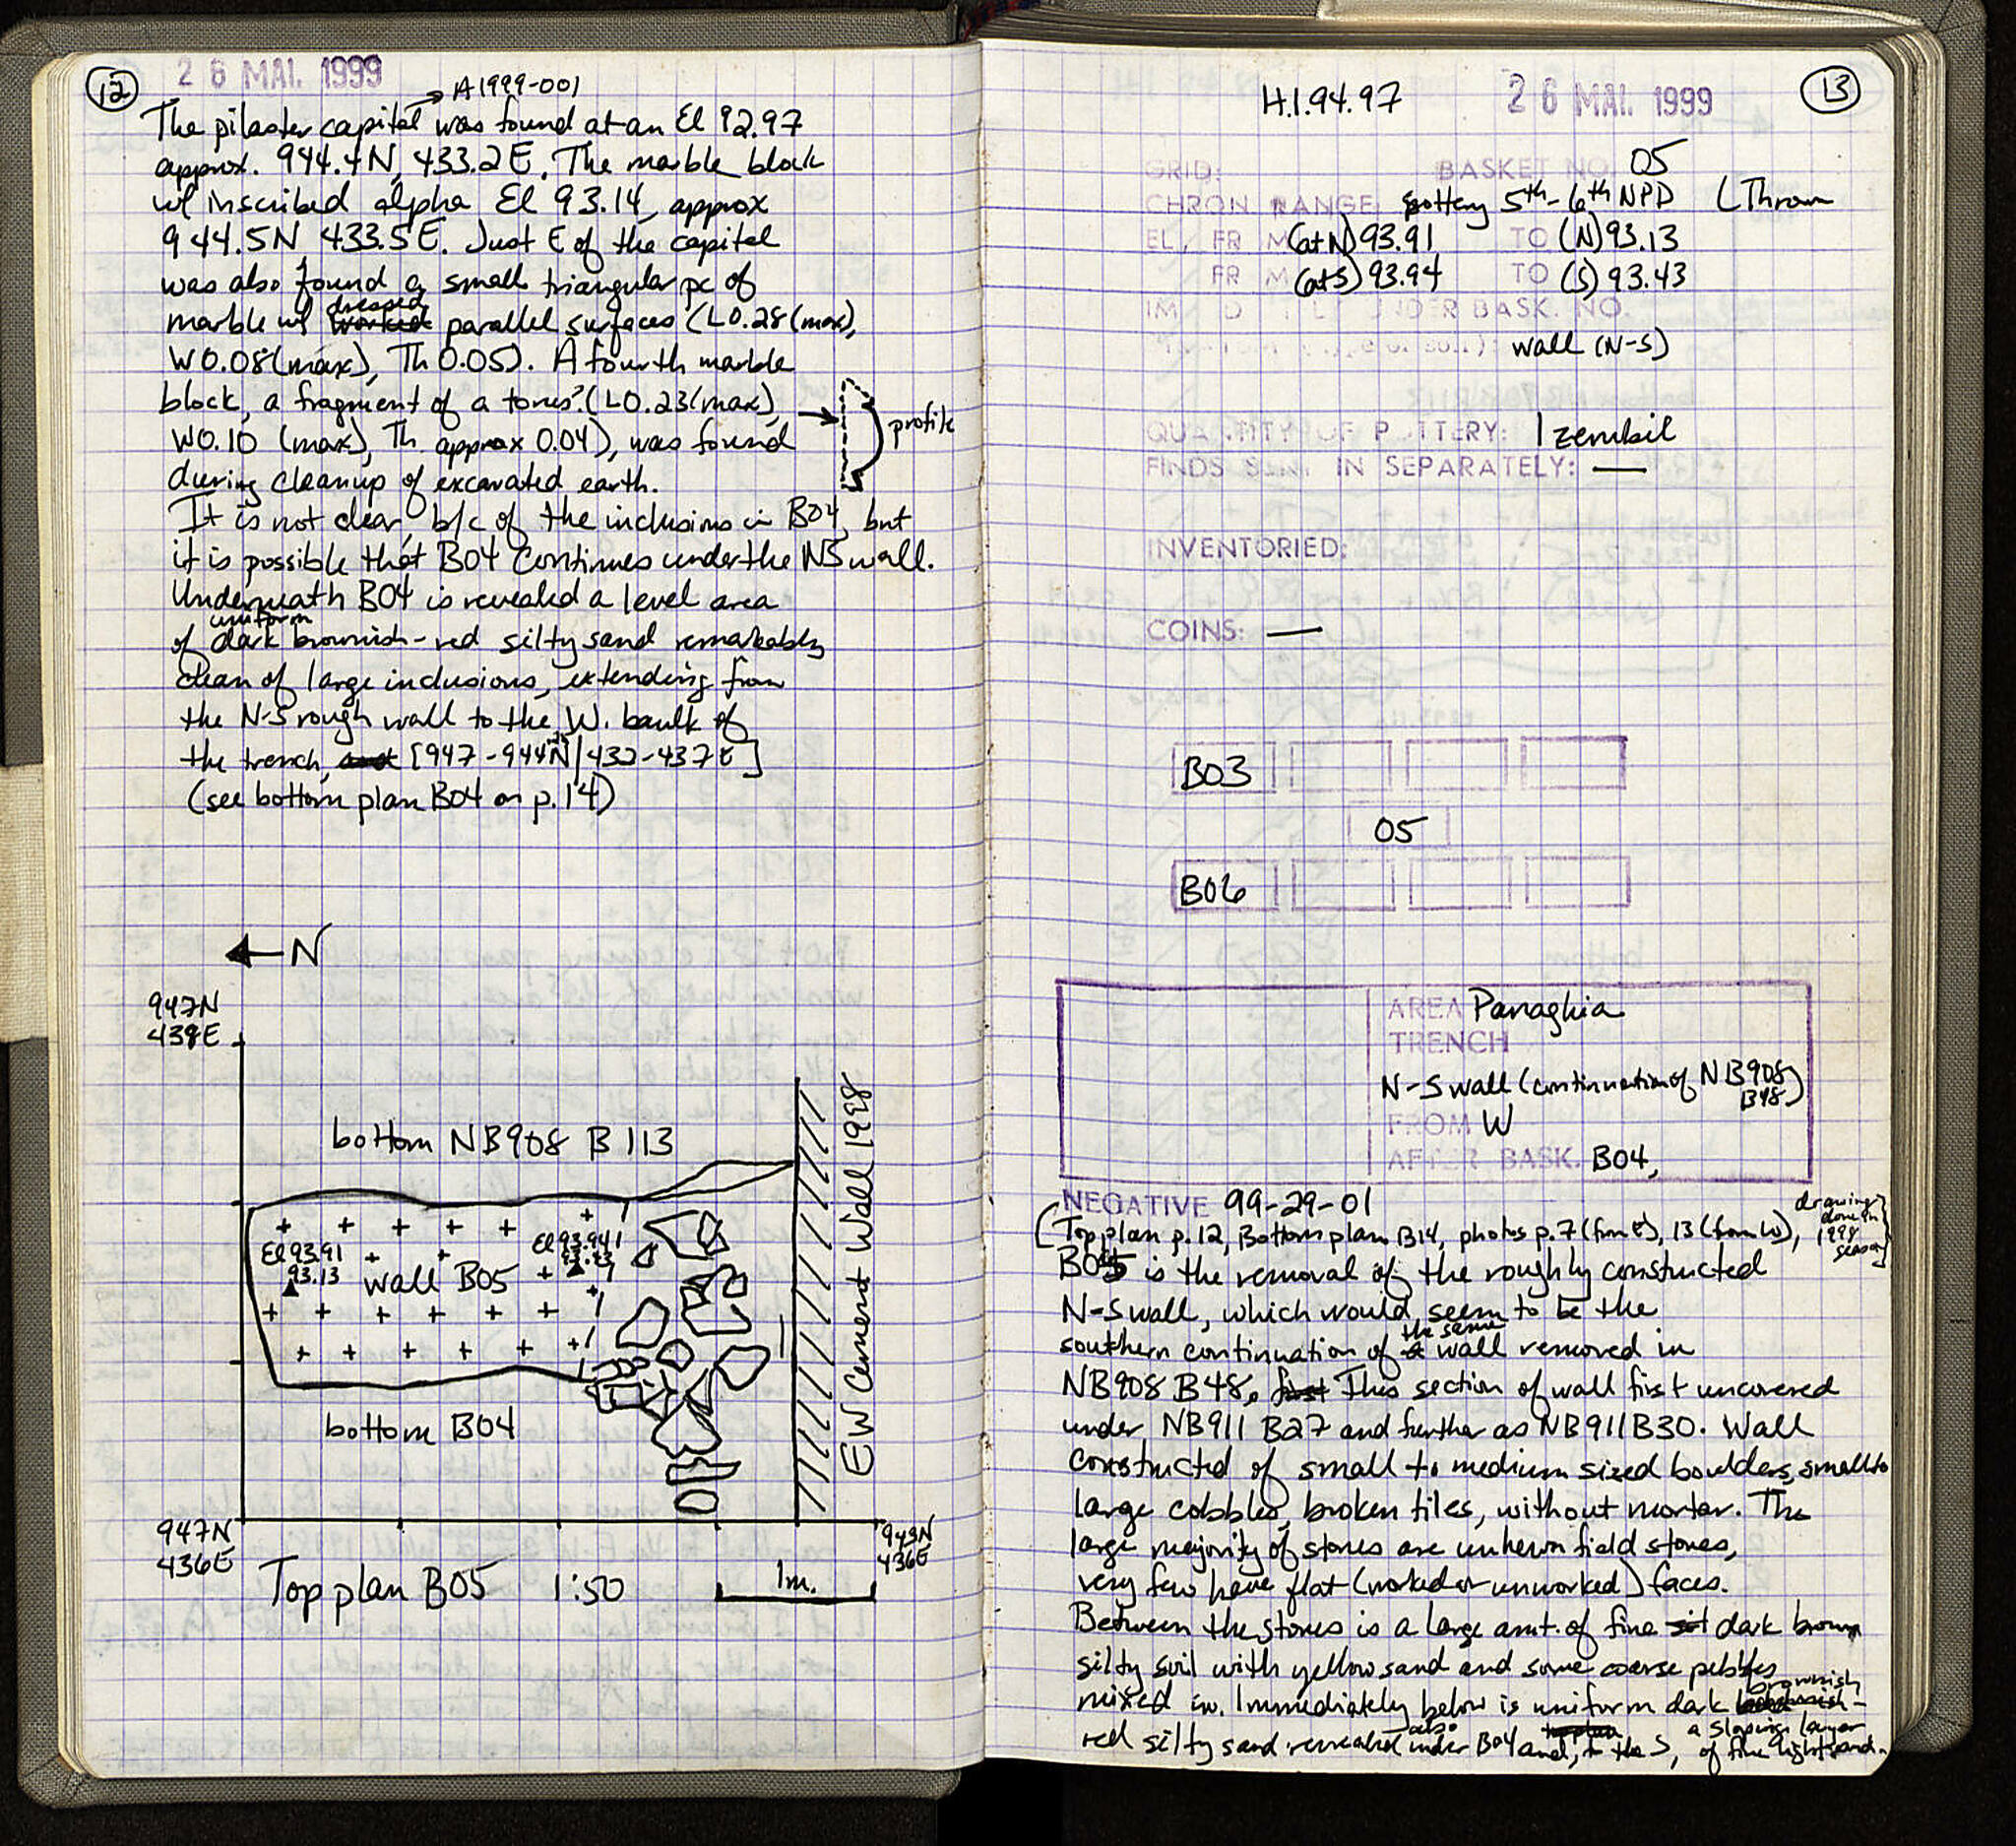 12
26 MAI. 1999
A1999-001
The pilaster capital was found at an El 92.97
approx. 944.4N, 433.2E. The marble block
w/ inscribed alpha El 93.14, approx
944.5N 433.5E. Just E of the capital
was also found a small triangular pc of
dressed
marble w/ worked parallel surfaces (L0.28(max),
W0.08(max), Th 0.05). A fourth marble
block, a fragment of a torus? (L0.23(max),
profile
W0.10 (max), Th. approx 0.04), was found
during cleanup of excavated earth.
It is not clear, b/c of the inclusions in B04, but
it is possible that B04 continues under the NS wall.
Underneath B04 is revealed a level area
uniform
of dark brownish-red silty sand remarkably
clean of large inclusions, extending from
the N-S rough wall to the W. baulk of
the trench, [947-944N/432-437E]
(see bottom plan B04 on p.14)
N
947N
438E
bottom NB908 B113
El 93.91
93.13
El 93.94
wall B05
bottom B04
EW Cement Wall 1998
947N
436E
943N
436E
Top plan B05 1:50
1m.
H.I. 94.97
26 MAI. 1999
13
GRID:
BASKET NO. 05
CHRON RANGE: pottery 5th-6th NPD (Thrown
EL, FR M (at N) 93.91 TO (N) 93.13
FR M (at S) 93.94 TO (S) 93.43
UNDER BASK. NO.
wall (N-S)
QUANTITY OF POTTERY: 1 zembil
FINDS SENT IN SEPARATELY: —
INVENTORIED:
COINS: —
B03
05
B06
AREA Panaghia
TRENCH
N-S wall (continuation of NB908
B48)
FROM W
AFTER BASK. B04,
NEGATIVE 99-29-01
(Top plan p.12, Bottom plan B14, photos p.7 (from E), 13 (from W),
drawing
done in
1998
season)
B05 is the removal of the roughly constructed
N-S wall, which would seem to be the
the same
southern continuation of a wall removed in
NB908 B48, first This section of wall first uncovered
under NB911 B27 and further as NB911 B30. Wall
constructed of small to medium sized boulders, small to
large cobbles, broken tiles, without mortar. The
large majority of stones are unhewn field stones,
very few have flat (worked or unworked) faces.
Between the stones is a large amt. of fine silt dark brown
silty soil with yellow sand and some coarse pebbles
brownish
mixed in. Immediately below is uniform dark
red silty sand revealed also under B04 and, to the S, a sloping layer
of fine light sand.